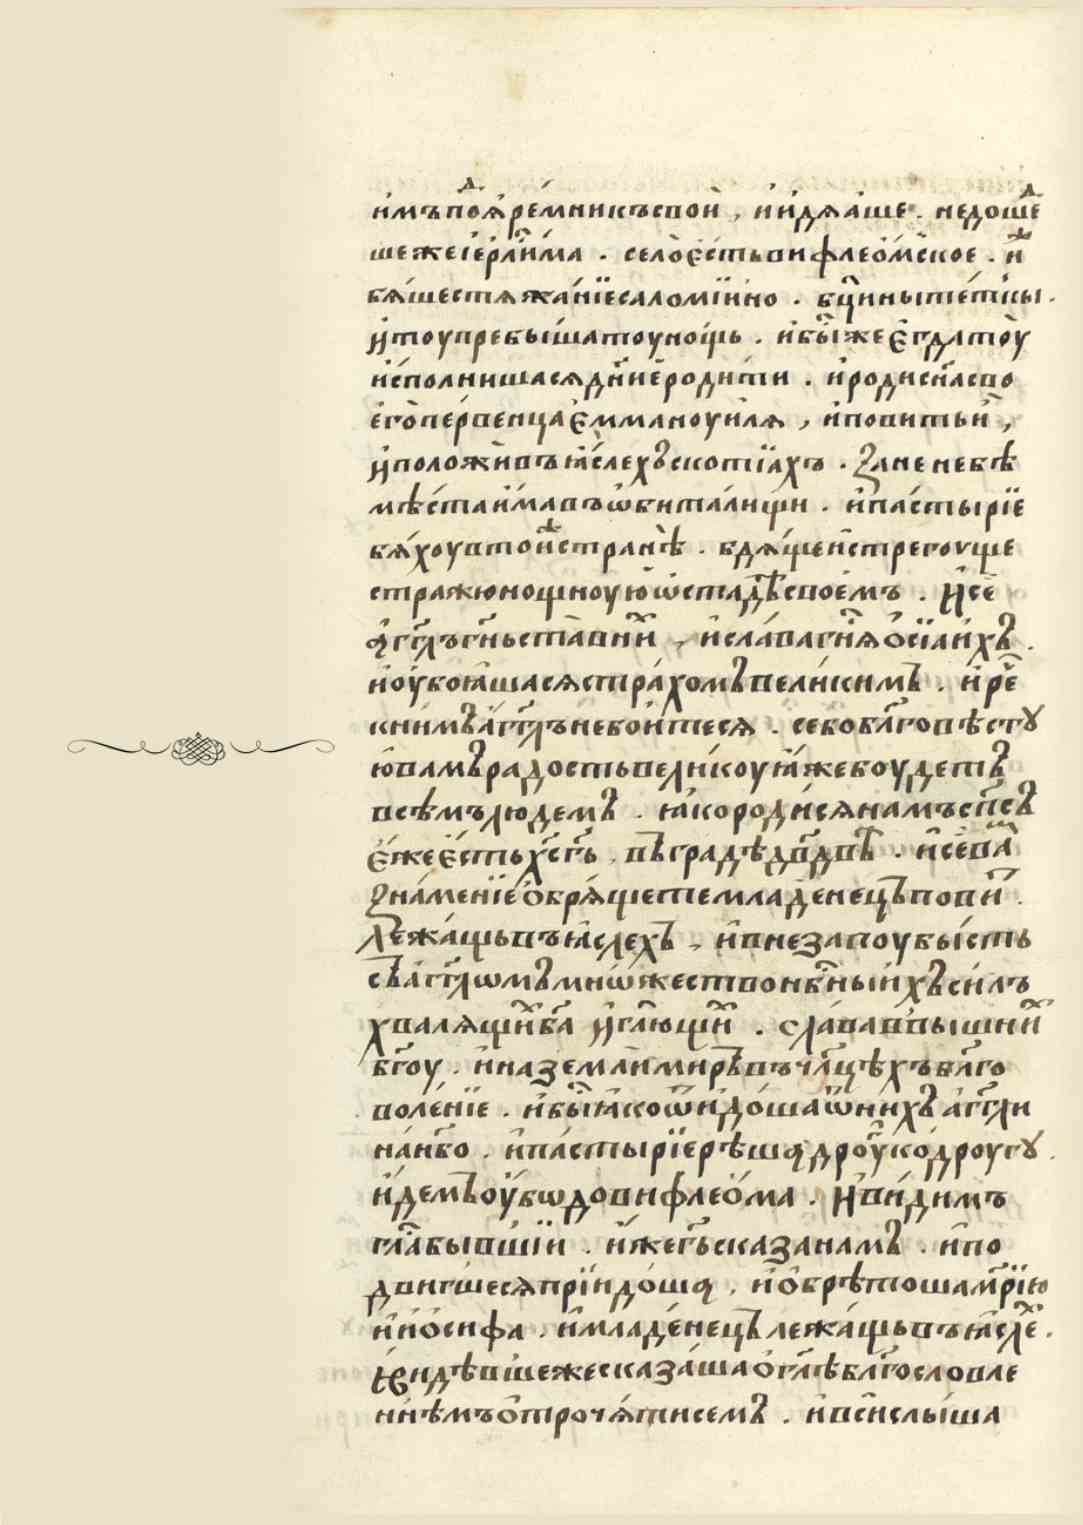 имъпоꙗ҆ре́мникъсвои҆ , и҆и҆дѧа҆ше . недоше҆ⷣ
шежеіерⷭ҇ли́ма . село̀є҆́стьвифлео́мское . иⷤ
бѧ́шестѧжа́нїесаломїи҆но . бц҃инытетъкы .
итоупребы́шатоуно́щь . и҆бы́ⷭжеє҆гдатоу
и҆спо́лнишасѧдн҃їе҆роди́ти . и҆родисн҃асво
его̀пе́рвенцаємманоуи́лѧ , и҆повитьи҆ ,
иположи́въꙗ҆́слехъскотїахъ . Зане небѣ
мѣ́стаи҆́мавъѡ҆бита́лищи . и҆па́стырїе
бѧ́хоувтоиⷤстранѣ . бдѧ́щеи҆стрегоуще
стражюнощноу́юѡ҆стадѣсвое́мъ . Исе
а҆гг҃лъгн҃ьста̀вни́ⷯ , и҆сла́вагн҃ѧо҆сїаи́хъ .
и҆оубоꙗ́шасѧстра́хомъвели́кимъ . и҆рⷱ҇е
кни́мъа́гг҃лънебои́тесѧ . себобл҃говѣстꙋ
ювамърадостьвели́коуюꙗ҆́жебоудетъ
всѣ́мълюдемъ . ꙗ҆короди́сѧнамъсп҃съ
є҆́жеє҆́стьхс҃гь̑ . въградѣдв҃двѣ . и҆севаⷨ
Зна́менїео҆брѧ́щетемладе́нецъпови́ⷮ .
Лежа́щьвъꙗ҆́слехъ , и҆внезапоубы́сть
съа́гг҃ломъмнѡ́жествонбⷭ҇ныихъси́лъ
хвалѧщи́ⷯба҃ игл҃ющиⷯ . сла́вавъвышни́ⷯ
бг҃оу . и҆наземлѝмиръвъчл҃цѣхъбл҃го
воле́нїе . и҆бы́ⷭꙗ҆коѿи҆до́шаѿни́хъа́гг҃ли
на́нб҃о . и҆па́стырїерѣшѧдроуⷢко́дроугꙋ .
и҆́демъоу҆бѡдовифлео́ма . Иви́димъ
гл҃абы́вшїи . и҆́жегь҃сказанамъ . и҆по
дви́гшесѧпрїидо́шѧ , и҆о҆брѣтошамр҃їю
и҆и҆о́сифа . и҆младе́нецълежа́щьвъꙗ҆сле́ⷯ .
видѣвшежесказа́шао҆гл҃ѣбл҃гословле
ннѣмъо҆трочѧ́тисемъ . и҆всѝслы́ша